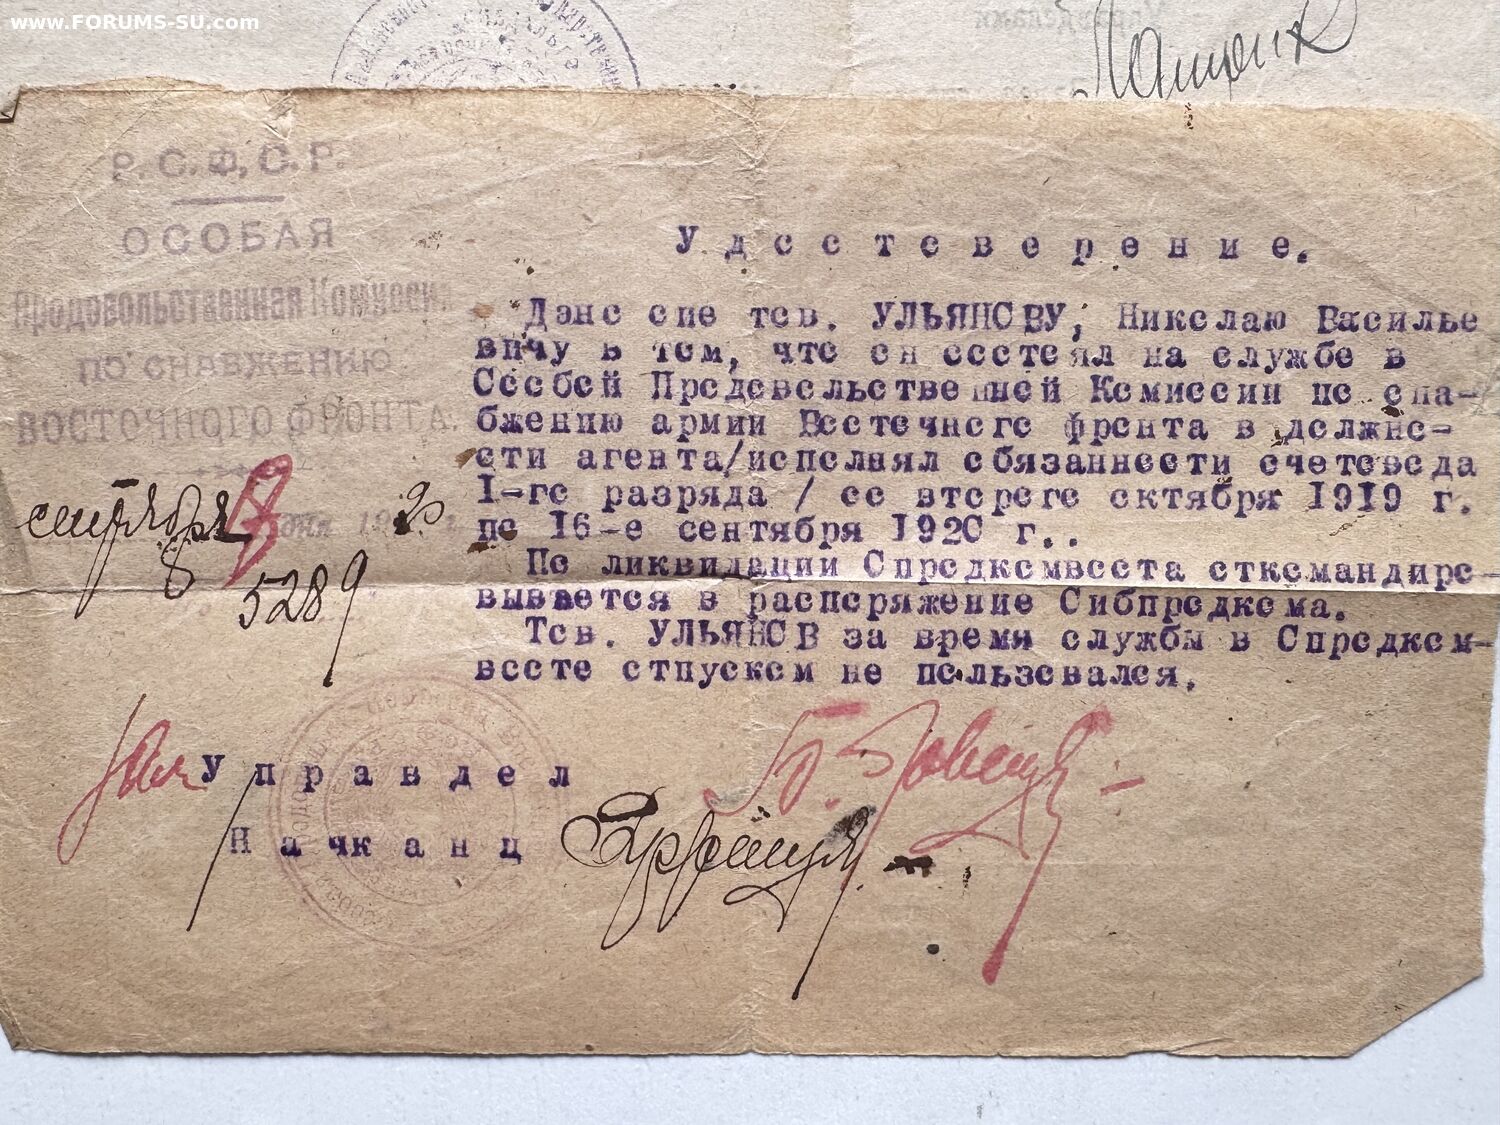 www.FORUMS-SU.com
Р.С.Ф.С.Р.
ОСОБАЯ
Продовольственная Комиссия
ПО СНАБЖЕНИЮ
ВОСТОЧНОГО ФРОНТА.
сентября
5289
Удостоверение.
Дано сие тов. УЛЬЯНОВУ, Николаю Василье
вичу в том, что он состоял на службе в
Особой Продовольственной Комиссии по сна-
бжению армии Восточного фронта в должно-
сти агента/исполнял обязанности счетовода
1-го разряда / со второго октября 1919 г.
по 16-е сентября 1920 г..
По ликвидации Опродкомвоста откомандиро-
вывается в распоряжение Сибпродкома.
Тов. УЛЬЯНОВ за время службы в Опродком-
восте отпуском не пользовался.
Управдел
Начканц